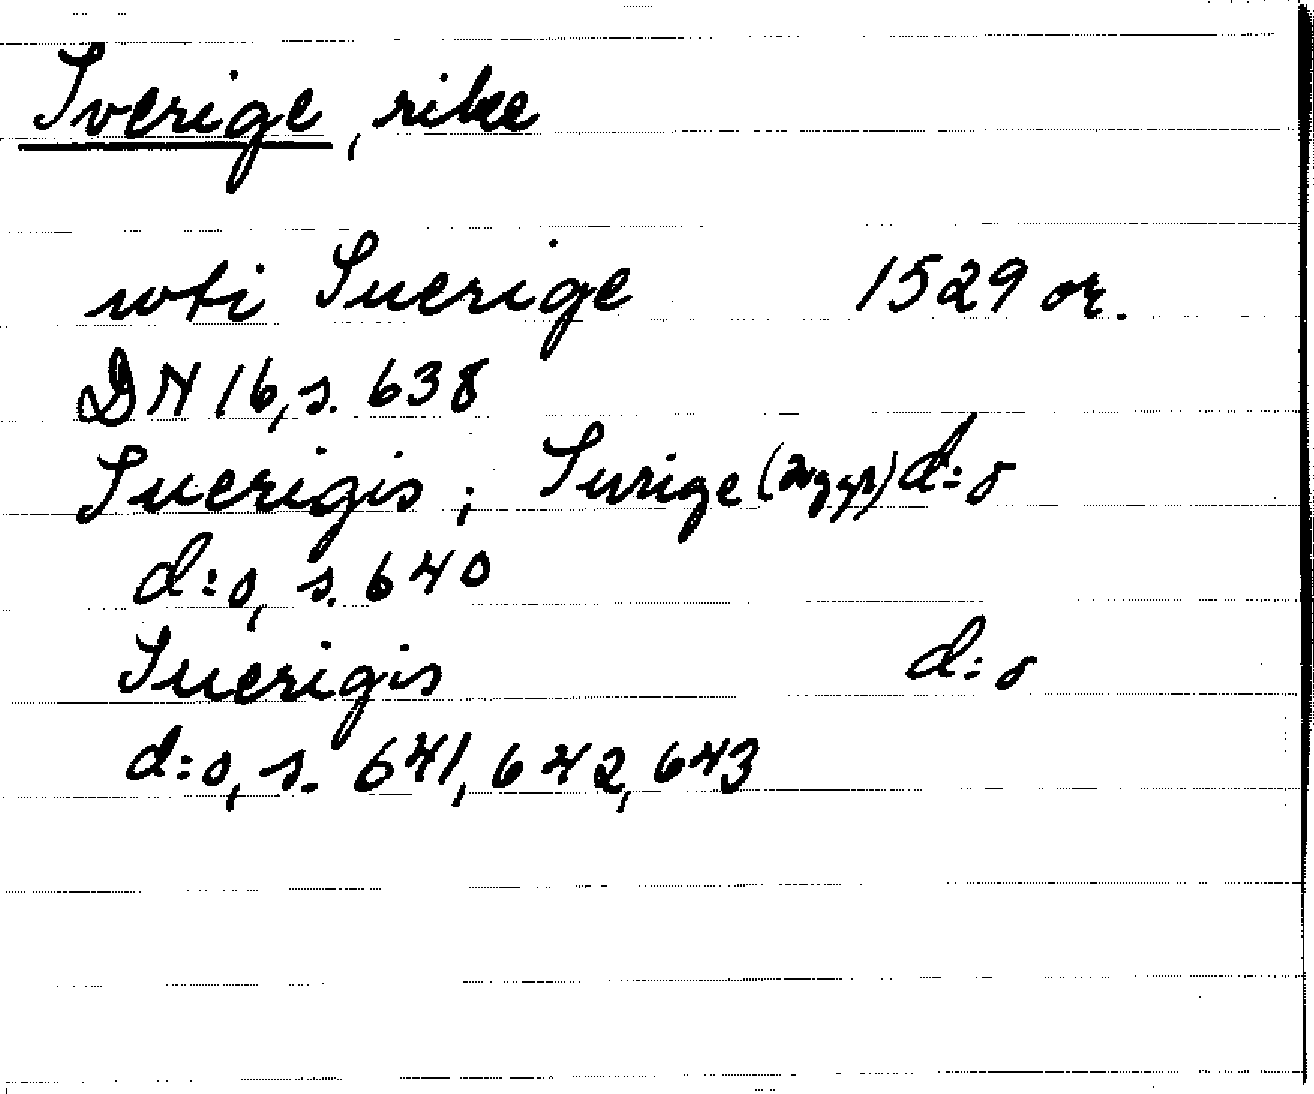 Sverige, rike
wti Suerige 1529 or.
DN 16, s. 638
Suerigis; Surige (2 ggr) d:o
d:o, s. 640
Suerigis d:o
d:o, s. 641, 642, 643